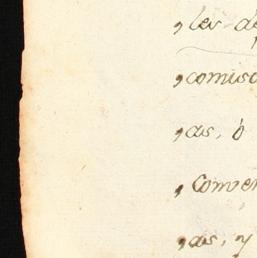 , ler de
, comiso
, as, ó
, Conven
, as, y